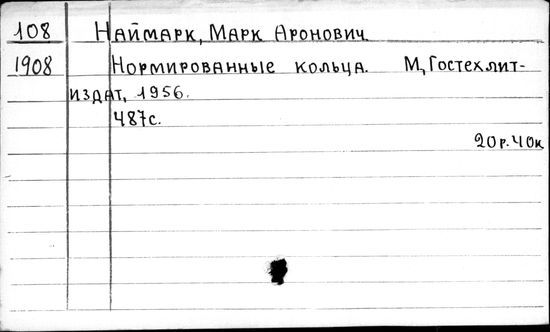 108 Наймарк, Марк Аронович
1908 Нормированные кольца. М, Гостехлит-
издат, 1956.
487с.
20р.40к